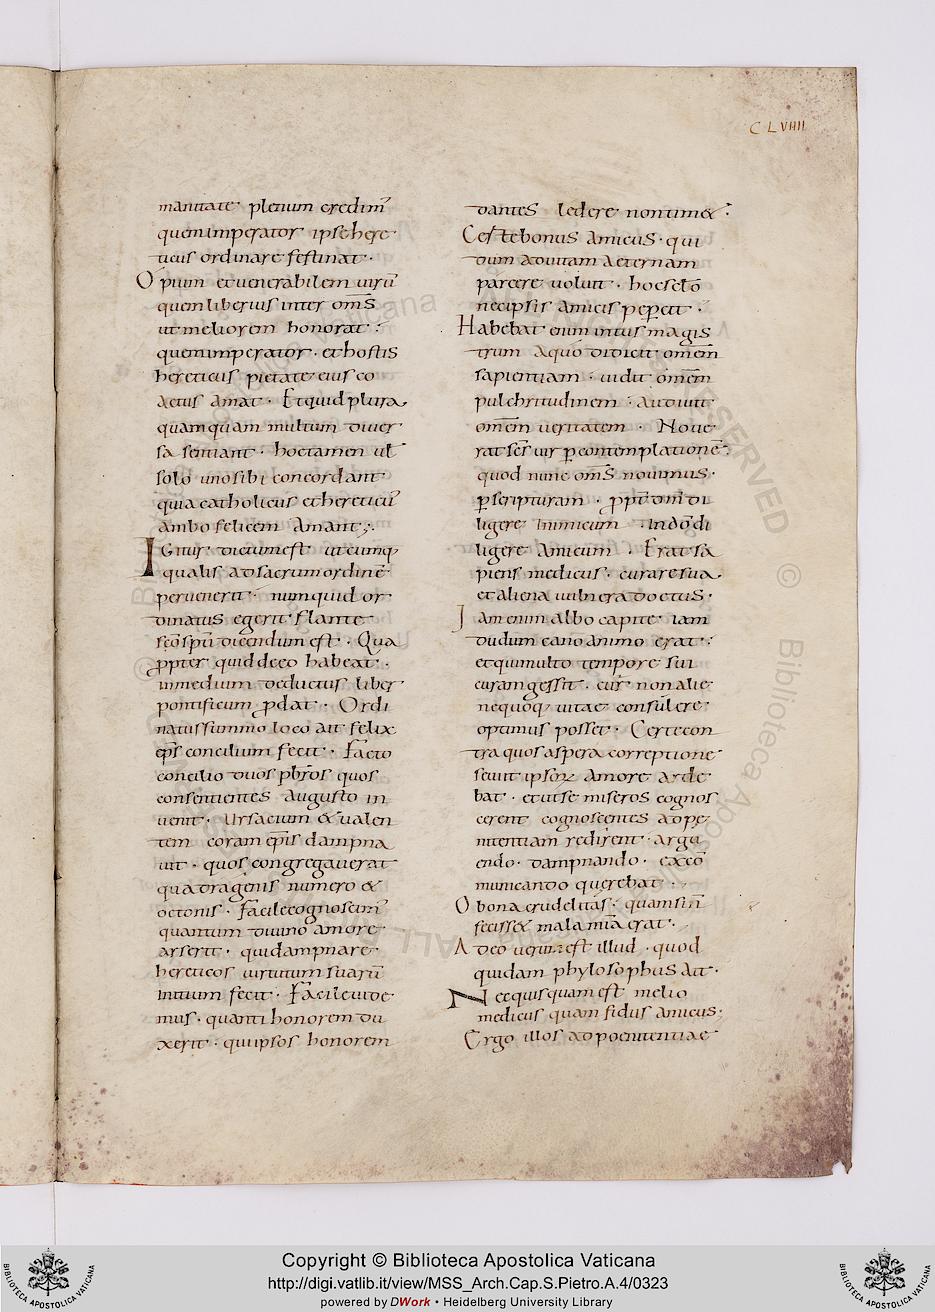 CLVIIII
manitate· plenum credim᾽
quem imperator ipse here
ticus ordinare festinat·
O pium et venerabilem uirū
quem liberius inter om̄s
ut meliorem honorat·
quem imperator· et hostis
hereticus pietate eius co
actus amat· Et quid plura,
quamquam multum diuer
sa sentiant· hoc tamen uł
solo uno sibi concordant·
quia catholicus et hereticū
ambo felicem amant;·
IGitur· dictum est ut cumq;
qualis ad sacrum ordinē·
peruenerit· numquid or
dinatus egerit flante
sc̄o sp̄u dicendum est· Qua
ꝓpter quid de eo habeat·
in medium deductus liber·
pontificum ꝓdat· Ordi
natus summo loco ait felix
ep̄s concilium fecit· Facto
concilio duos pb̄ros quos
consentientes augusto in
uenit· Ursacium & ualen
tem coram ep̄is dampna
uit· quos congregauerat
quadragenis numero &
octonis· Facile cognoscim᾽
quantum diuino amore·
arserit· qui dampnare·
hereticos uirtutum suarū
initium fecit· Facile uide
mus· quanti honorem du
xerit· qui ipsos honorem
dantes ledere non tim&·
Cesse bonus amicus· qui
dum ad uitam aeternam
parcere uoluit· hoc est ō
nec ipsis amicis peꝑcit·
Habebat enim intus magis
trum a quo didicit om̄em
sapientiam· uidit om̄em
pulchritudinem· audiuit
om̄em ueritatem· Noue
rat sc̄s uir ꝑ contemplationē·
quod nunc om̄s nouimus·
ꝑ scripturam· ꝓpt̄ dm̄ di
ligere inimicum· In dō di
ligere amicum· Erat sa
piens medicus· curare sua,
et aliena uulnera doctus·
Iam enim albo capite iam
dudum cano animo erat·
et qui multo tempore sui
curam gessit· cur non alie
ne quoq; uitae consulere·
optimus posset· Certe con
tra quos aspera correptione·
seuiit ipsoꝝ amore arde
bat· et ut se miseros cognos
cerent cognoscentes ad pe
nitentiam redirent· argu
endo· dampnando· excō
municando querebat·
O bona crudelitas· quam si n̄
feciss& mala mīa erat·
Adeo uerum est illud· quod
quidam phylosophus ait·
Nec quisquam est melio
medicus quam fidus amicus·
Ergo illos ad poenitentiae
Copyright © Biblioteca Apostolica Vaticana
http://digi.vatlib.it/view/MSS_Arch.Cap.S.Pietro.A.4/0323
powered by DWork • Heidelberg University Library